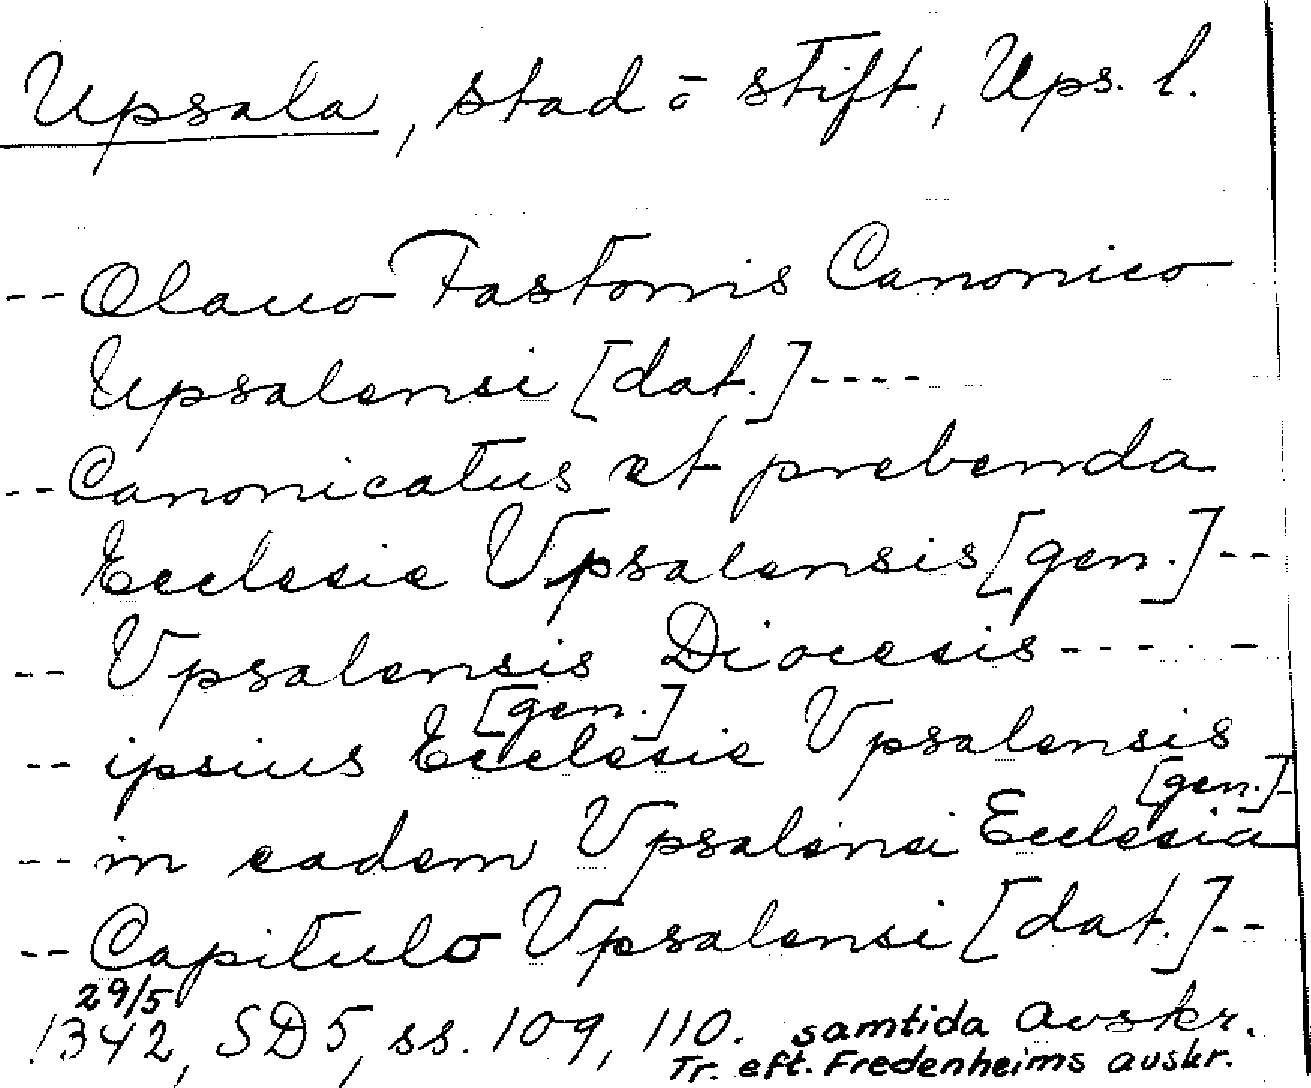 Upsala, stad o stift, Ups. l.
-- Olauo Fastonis Canonico
Upsalensi [dat.] ----
-- Canonicatus et prebenda
Ecclesie Vpsalensis [gen.] --
-- Vpsalensis Diocesis -----
[gen.]
-- ipsius Ecclesie Vpsalensis
[gen.] -
-- in eadem Vpsalensi Ecclesia
-- Capitulo Vpsalensi [dat.] --
29/5
1342, SD 5, ss. 109, 110. samtida avskr.
Tr. eft. Fredenheims avskr.